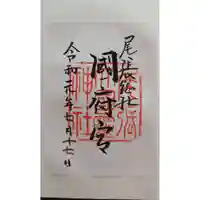 尾張総社
國府宮
令和元年七月十七日